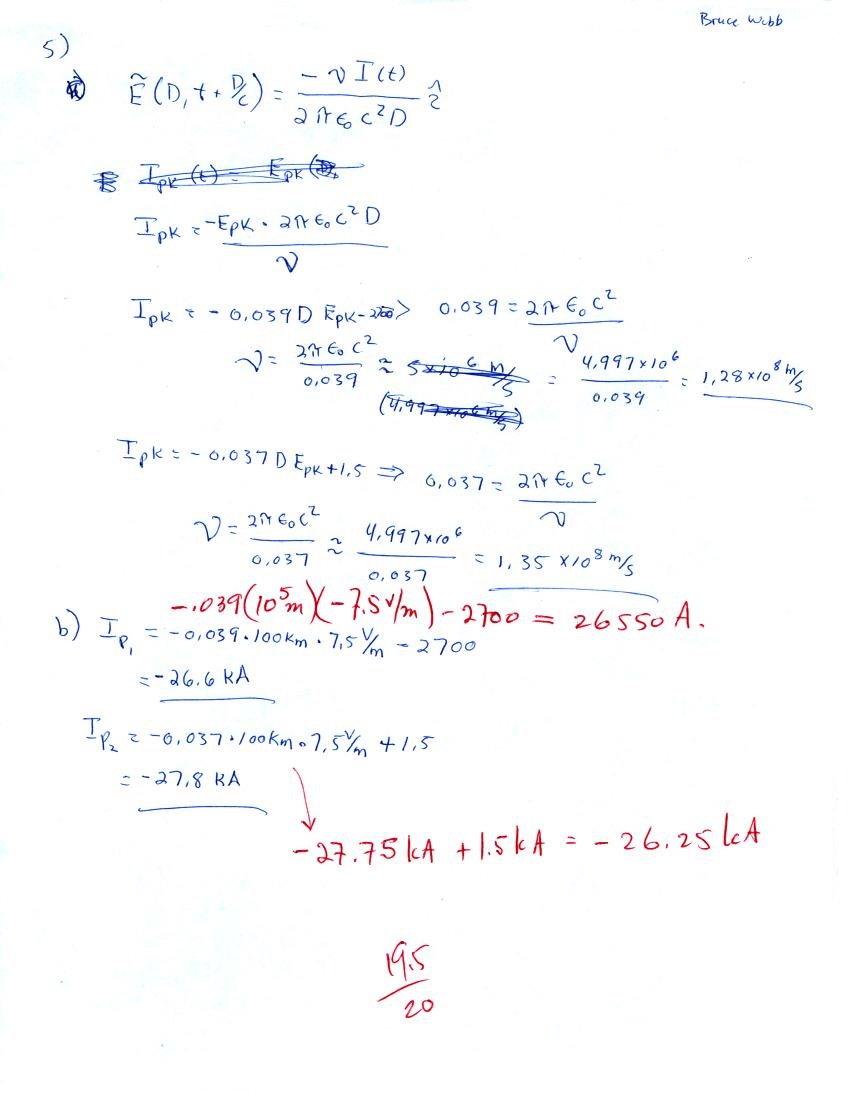 Bruce Webb
5)
a) Ẽ(D, t + D/c) = -v I(t) / 2πε₀c²D ẑ
I_pk(t) = E_pk(D,
I_pk = -E_pk · 2πε₀c²D / v
I_pk = -0.039D E_pk-2700 > 0.039 = 2πε₀c² / v
v = 2πε₀c² / 0.039 ≈ 5×10⁶ m/s = 4.997×10⁶ / 0.039 = 1.28×10⁸ m/s
(4.997×10⁶ m/s)
I_pk = -0.037 D E_pk+1.5 ⇒ 0.037 = 2πε₀c² / v
v = 2πε₀c² / 0.037 ≈ 4.997×10⁶ / 0.037 = 1.35×10⁸ m/s
-.039(10⁵m)(-7.5V/m) - 2700 = 26550 A.
b) I_P₁ = -0.039·100km·7.5V/m - 2700
= -26.6 kA
I_P₂ = -0.037·100km·7.5V/m + 1.5
= -27.8 kA
-27.75 kA + 1.5 kA = -26.25 kA
19.5/20